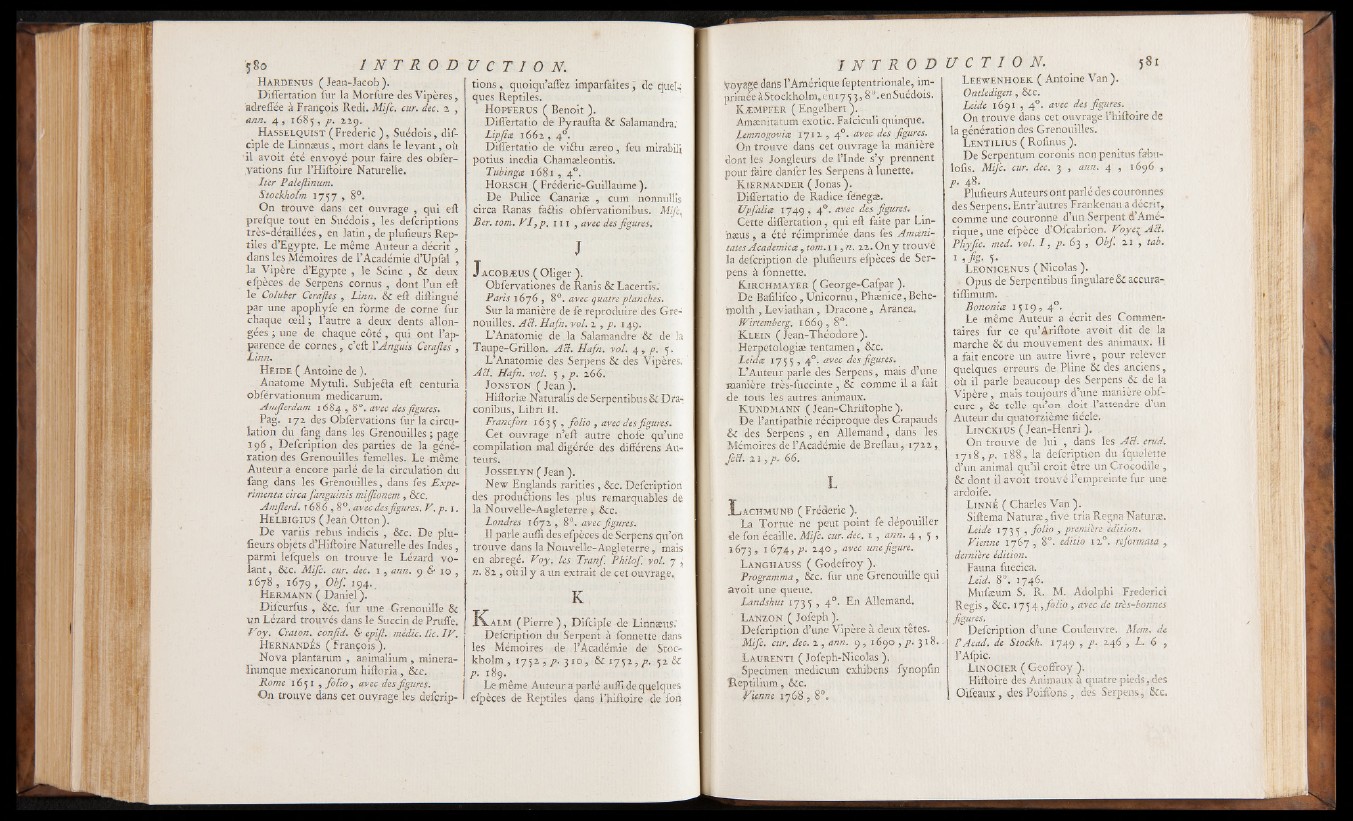 580 INTRODUCTION.
HARDENUS (Jean-Jacob).
Differtation fur la Morfure des Vipères,
adreffée à François Redi. Mifc. cur. dec. 2 ,
ann. 4, 1685, p. 229.
HASSELQUIST (Frederic), Suédois, dif-
ciple de Linnæus, mort dans le levant, où
il avoit été envoyé pour faire des obfer-
vations fur l'Hiftoire Naturelle.
Iter Paleftinum.
Stockholm 1757, 8°.
On trouve dans cet ouvrage , qui eft
prefque tout en Suédois, les defcriptions
très-détaillées, en latin, de plufieurs Rep-
tiles d'Egypte. Le même Auteur a décrit ,
dans les Mémoires de l'Académie d'Upfal ,
la Vipère d'Egypte , le Scinc , & deux
efpèces de Serpens cornus , dont l'un eft
le Coluber Ceraftes , Linn. & eft diftingué
par une apophyfe en forme de corne fur
chaque œil ; l'autre a deux dents allon-
gées ; une de chaque côté , qui ont l'ap-
parence de cornes, c'eft l'Anguis Ceraftes ,
Linn.
HEIDE ( Antoine de ).
Anatome Mytuli. Subjecta eft centuria
obfervationum medicarum.
Amfterdam 1684 , 8°. avec des figures.
Pag. 172 des Obfervations fur la circu-
lation du fang dans les Grenouilles ; page
196 , Defcription des parties de la géné-
ration des Grenouilles femelles. Le même
Auteur a encore parlé de la circulation du
fang dans les Grenouilles, dans fes Expe-
rimenta circa fanguinis miffionem , &c.
Amfterd. 1686 , 8°. avec des figures. V. p. 1.
HELBIGIUS ( Jean Otton ).
De variis rebus indicis , &c. De plu-
fieurs objets d'Hiftoire Naturelle des Indes,
parmi lefquels on trouve le Lézard vo-
lant, &c. Mifc. cur. dec. 1 , ann. 9 & 10 ,
1678 , 1679 , Obf. 194.
HERMANN ( Daniel ).
Difcurfus , &c. fur une Grenouille &
un Lézard trouvés dans le Succin de Pruffe.
Voy. Craton. confid. & epift. médic. lic. IV.
HERNANDÉS ( François ).
Nova plantarum , animalium , minera-
liumque mexicanorum hiftoria , &c.
Rome 1651 , folio, avec des figures.
On trouve dans cet ouvrage les defcrip-
tions, quoiqu'affez imparfaites, de quel-
ques Reptiles.
HOPFERUS ( Benoit ).
Differtatio de Pyraufta & Salamandra.
Lipfiæ 1662 , 4°.
Differtatio de victu æreo, feu mirabili
potius inedia Chamæleontis.
Tubingæ 1681 , 4°.
HORSCH ( Fréderic-Guillaume ).
De Pulice Canariæ , cum nonnullis
circa Ranas factis obfervationibus. Mifc.
Ber. tom. VI, p. 111 , avec des figures.
J
JACOBÆUS ( Oliger ).
Obfervationes de Ranis & Lacertis.
Paris 1676 , 8°. avec quatre planches.
Sur la manière de fe reproduire des Gre-
nouilles. Act. Hafn. vol. 2 , p. 149.
L'Anatomie de la Salamandre & de la
Taupe-Grillon. Act. Hafn. vol. 4 , p. 5.
L'Anatomie des Serpens & des Vipères.
Act. Hafn. vol. 5 , p. 266.
JONSTON ( Jean ).
Hiftoriæ Naturalis de Serpentibus & Dra-
conibus, Libri II.
Francfort 1635 , folio , avec des figures.
Cet ouvrage n'eft autre chofe qu'une
compilation mal digérée des différens Au-
teurs.
JOSSELYN ( Jean ).
New Englands rarities , &c. Defcription
des productions les plus remarquables de
la Nouvelle-Angleterre , &c.
Londres 1672 , 8°. avec figures.
Il parle auffi des efpèces de Serpens qu'on
trouve dans la Nouvelle-Angleterre , mais
en abregé. Voy. les Tranf. Philof. vol. 7 ,
n. 82 , où il y a un extrait de cet ouvrage.
K
KALM ( Pierre ), Difciple de Linnæus.
Defcription du Serpent à fonnette dans
les Mémoires de l'Académie de Stoc-
kholm , 1752 , p. 310 , & 1752 , p. 52 &
p. 189.
Le même Auteur a parlé auffi de quelques
efpèces de Reptiles dans l'hiftoire de fon
INTRODUCTION. 581
voyage dans l'Amérique feptentrionale, im-
primée à Stockholm, en 1753, 8°. en Suédois.
KÆMPFER ( Engelbert ).
Amænitatum exotic. Fafciculi quinque.
Lemnogoviæ 1712 , 4°. avec des figures.
On trouve dans cet ouvrage la manière
dont les Jongleurs de l'Inde s'y prennent
pour faire danfer les Serpens à lunette.
KIERNANDER ( Jonas ).
Differtatio de Radice fénegæ.
Upfaliæ 1749 , 4°. avec des figures.
Cette differtation, qui eft faite par Lin-
næus , a été réimprimée dans fes Amœni-
tates Academicæ, tom. 11, n. 22. On y trouve
la defcription de plufieurs efpèces de Ser-
pens à fonnette.
KIRCHMAYER ( George-Cafpar ).
De Bafilifco , Unicornu, Phænice, Behe-
molth , Leviathan , Dracone , Aranea.
Wirtemberg, 1669 , 8°.
KLEIN ( Jean-Théodore ).
Herpetologiæ tentamen , &c.
Leidæ 1755 , 4°. avec des figures.
L'Auteur parle des Serpens, mais d'une
manière très-fuccinte , & comme il a fait
de tous les autres animaux.
KUNDMANN ( Jean-Chriftophe ).
De l'antipathie réciproque des Crapauds
& des Serpens , en Allemand, dans les
Mémoires de l'Académie de Breflau, 1722 ,
fect. 21 , p. 66.
L
LACHMUND ( Fréderic ).
La Tortue ne peut point fe dépouiller
de fon écaille. Mifc. cur. dec. 1 , ann. 4 , 5 ,
1673 , 1674, p. 240 , avec une figure.
LANGHAUSS ( Godefroy ).
Programma, &c. fur une Grenouille qui
avoit une queue.
Landshut 1735 , 4°. En Allemand.
LANZON ( Jofeph ).
Defcription d'une Vipère à deux têtes.
Mifc. cur. dec. 2 , ann. 9 , 1690 , p. 318.
LAURENTI ( Jofeph-Nicolas ).
Specimen medicum exhibens fynopfin
Reptilium , &c.
Vienne 1768 , 8°.
LEEWENHOEK ( Antoine Van ).
Ontledigen , &c.
Leide 1691 , 4°. avec des figures.
On trouve dans cet ouvrage l'hiftoire de
la génération des Grenouilles.
LENTILIUS ( Rofinus ).
De Serpentum coronis non penitus fabu-
lofis. Mifc. cur. dec. 3 , ann. 4 , 1696 ,
p. 48.
Plufieurs Auteurs ont parlé des couronnes
des Serpens. Entr'autres Frankenau a décrit,
comme une couronne d'un Serpent d'Amé-
rique, une efpèce d'Ofcabrion. Voyez Act.
Phyfic. med. vol. I , p. 63 , Obf. 21 , tab.
1 , fig. 5.
LEONICENUS ( Nicolas ).
Opus de Serpentibus fingulare & accura-
tiffimum.
Bononiæ 1519 , 4°.
Le même Auteur a écrit des Commen-
taires fur ce qu'Ariftote avoit dit de la
marche & du mouvement des animaux. Il
a fait encore un autre livre, pour relever
quelques erreurs de Pline & des anciens,
où il parle beaucoup des Serpens & de la
Vipère , mais toujours d'une manière obf-
cure , & telle qu'on doit l'attendre d'un
Auteur du quatorzième fiécle.
LINCKIUS ( Jean-Henri ).
On trouve de lui , dans les Act. erud.
1718, p. 188, la defcription du fquelette
d'un animal qu'il croit être un Crocodile ,
& dont il avoit trouvé l'empreinte fur une
ardoife.
LINNÉ ( Charles Van ).
Siftema Naturæ, five tria Regna Naturæ.
Leide 1735 , folio , première édition.
Vienne 1767 , 8°. editio 12°. reformata ,
dernière édition.
Fauna fuecica.
Leid. 8°. 1746.
Mufæum S. R. M. Adolphi Frederici
Regis, &c. 1754, folio , avec de très-bonnes
figures.
Defcription d'une Couleuvre. Mem. de
l'Acad. de Stockh. 1749 , p. 246 , L. 6 ,
l'Afpic.
LINOCIER ( Geoffroy ).
Hiftoire des Animaux à quatre pieds, des
Oifeaux , des Poiffons , des Serpens, &c.